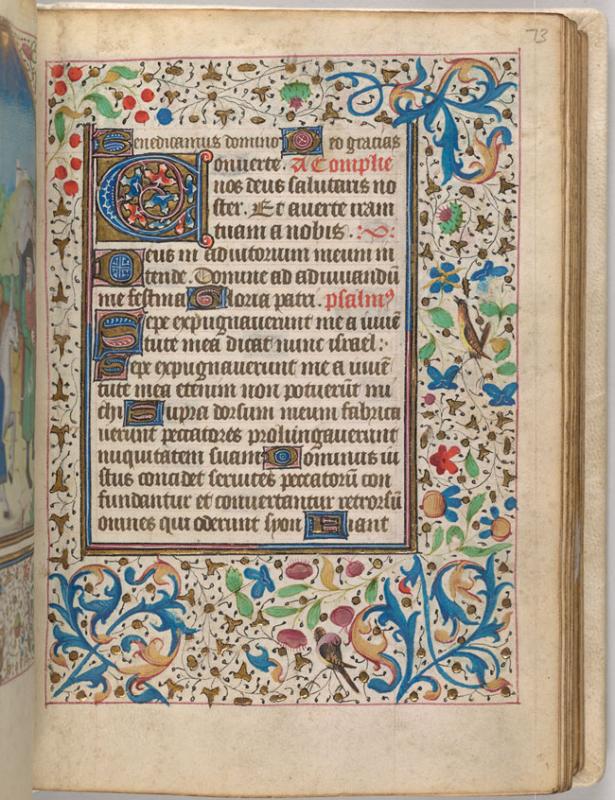 73
Benedicamus domino Deo gracias
Conuerte. A Complie
nos deus salutaris no
ster. Et auerte iram
tuam a nobis.
Deus in adiutorium meum in
tende. Domine ad adiuuandū
me festina Gloria patri. psalmꝰ
Sepe expugnauerunt me a iuuē
tute mea dicat nunc israel :
Sepe expugnauerunt me a iuuē
tute mea etenim non potuerūt mi
chi Supra dorsum meum fabrica
uerunt peccatores prolungauerunt
iniquitatem suam Dominus iu
stus concidet ceruices peccatorū con
fundantur et conuertantur retrorsū
omnes qui oderunt syon Fiant